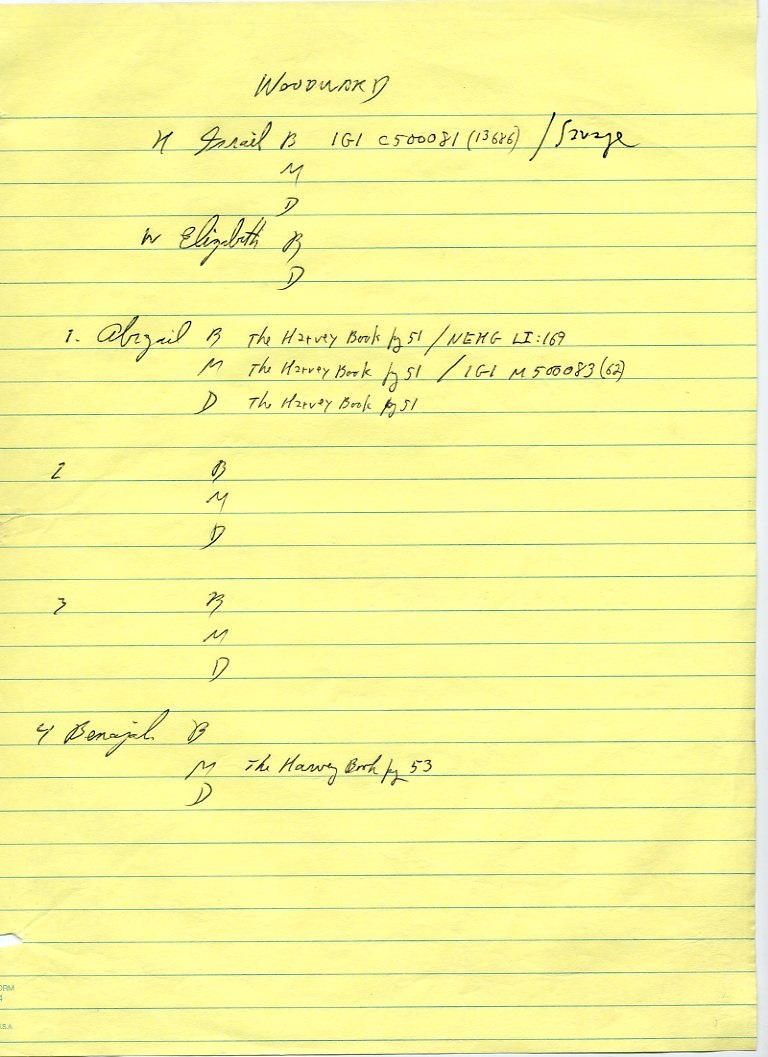 WOODWARD
H Israil B IGI C500081 (13686) / Savage
M
D
W Elizabeth B
D
1. Abigail B The Harvey Book pg 51 / NEHG LI:169
M The Harvey Book pg 51 / IGI M500083 (62)
D The Harvey Book pg 51
2 B
M
D
3 B
M
D
4 Benajah B
M The Harvey Book pg 53
D
ORM
4
.S.A.